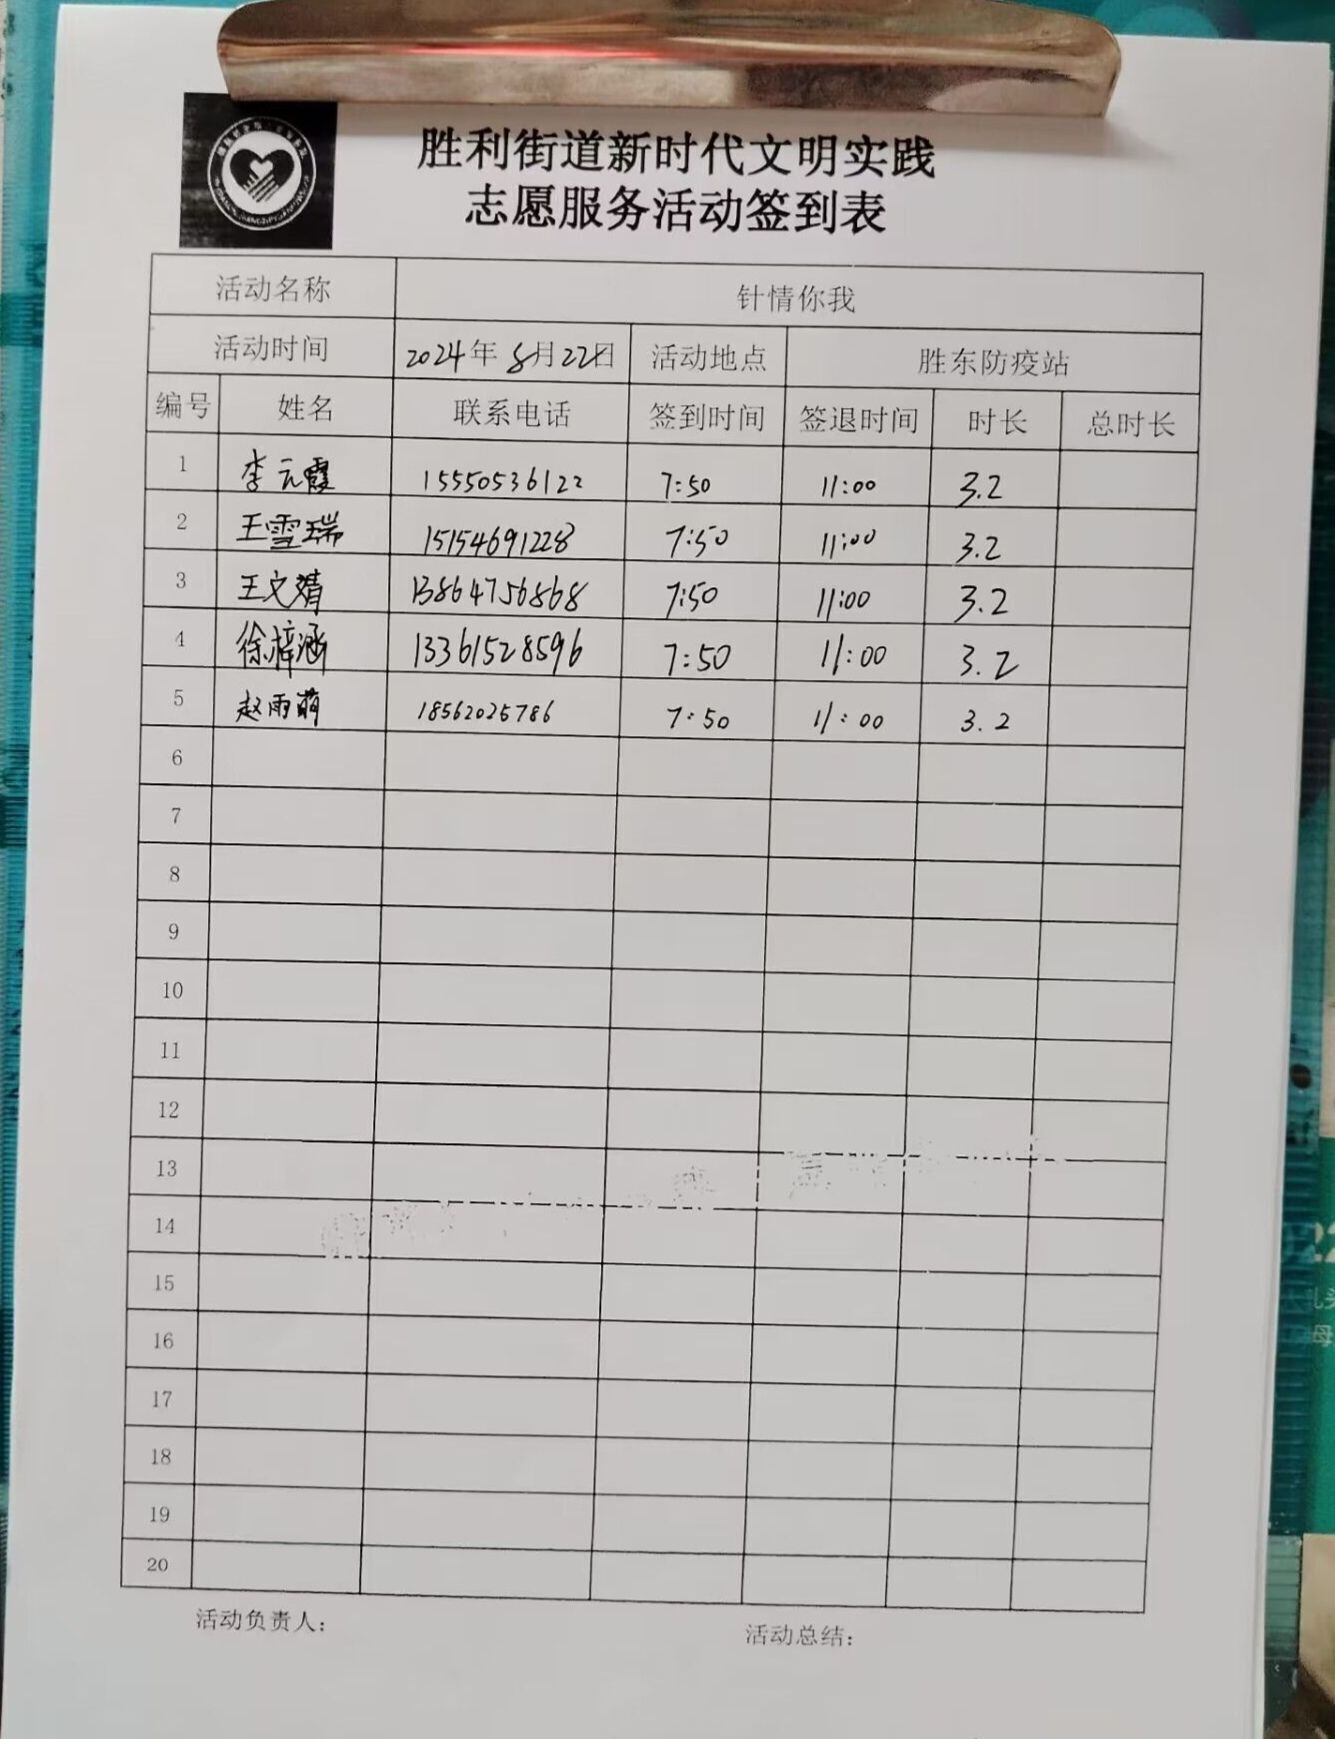 胜利街道新时代文明实践
志愿服务活动签到表
活动名称 针情你我
活动时间 2024年8月22日 活动地点 胜东防疫站
编号 姓名 联系电话 签到时间 签退时间 时长 总时长
1 李元霞 15550536122 7:50 11:00 3.2
2 王雪瑞 15154691228 7:50 11:00 3.2
3 王文婧 13864756868 7:50 11:00 3.2
4 徐梓涵 13361528596 7:50 11:00 3.2
5 赵雨萌 18562025786 7:50 11:00 3.2
6
7
8
9
10
11
12
13
14
15
16
17
18
19
20
活动负责人： 活动总结：